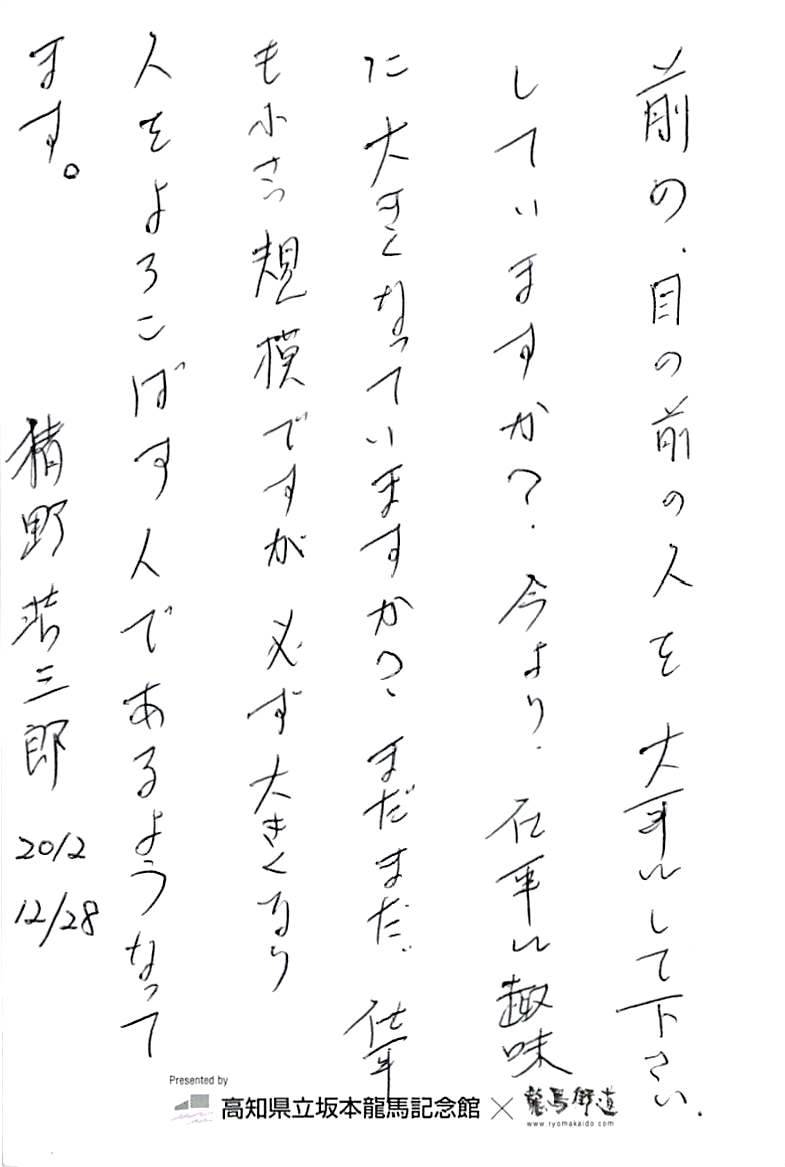 前の、目の前の人を大事にして下さい。
していますか？今より、仕事に趣味
に大きくなっていますか？まだまだ、仕事
も小さい規模ですが必ず大きくなり
人をよろこばす人であるようなって
ます。
猪野 三郎
2012
12/28
Presented by
高知県立坂本龍馬記念館×龍馬街道
www.ryomakaido.com